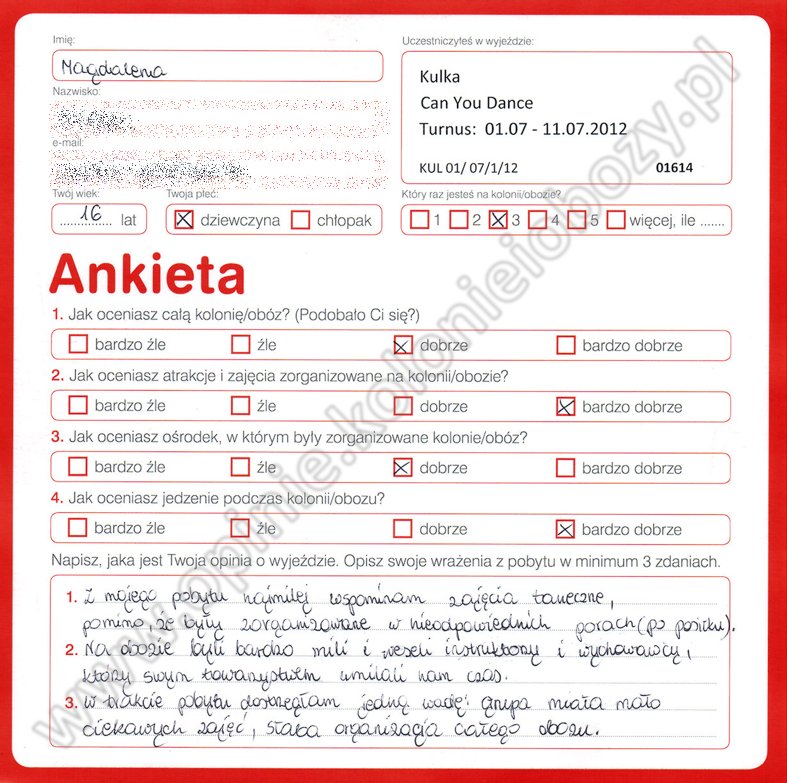 Imię:
Magdalena
Nazwisko:
e-mail:
Twój wiek:
16 lat
Twoja płeć:
dziewczyna chłopak
Uczestniczyłeś w wyjeździe:
Kulka
Can You Dance
Turnus: 01.07 - 11.07.2012
KUL 01/ 07/1/12 01614
Który raz jesteś na kolonii/obozie?
1 2 3 4 5 więcej, ile .......
Ankieta
1. Jak oceniasz całą kolonię/obóz? (Podobało Ci się?)
bardzo źle źle dobrze bardzo dobrze
2. Jak oceniasz atrakcje i zajęcia zorganizowane na kolonii/obozie?
bardzo źle źle dobrze bardzo dobrze
3. Jak oceniasz ośrodek, w którym były zorganizowane kolonie/obóz?
bardzo źle źle dobrze bardzo dobrze
4. Jak oceniasz jedzenie podczas kolonii/obozu?
bardzo źle źle dobrze bardzo dobrze
Napisz, jaka jest Twoja opinia o wyjeździe. Opisz swoje wrażenia z pobytu w minimum 3 zdaniach.
1. Z mojego pobytu najmilej wspominam zajęcia taneczne,
pomimo, że były zorganizowane w nieodpowiednich porach (po posiłku).
2. Na obozie byli bardzo mili i weseli instruktorzy i wychowawcy,
którzy swym towarzystwem umilali nam czas.
3. W trakcie pobytu dostrzegłam jedną wadę: grupa miała mało
ciekawych zajęć, słaba organizacja całego obozu.
www.opinie.kolonieiobozy.pl